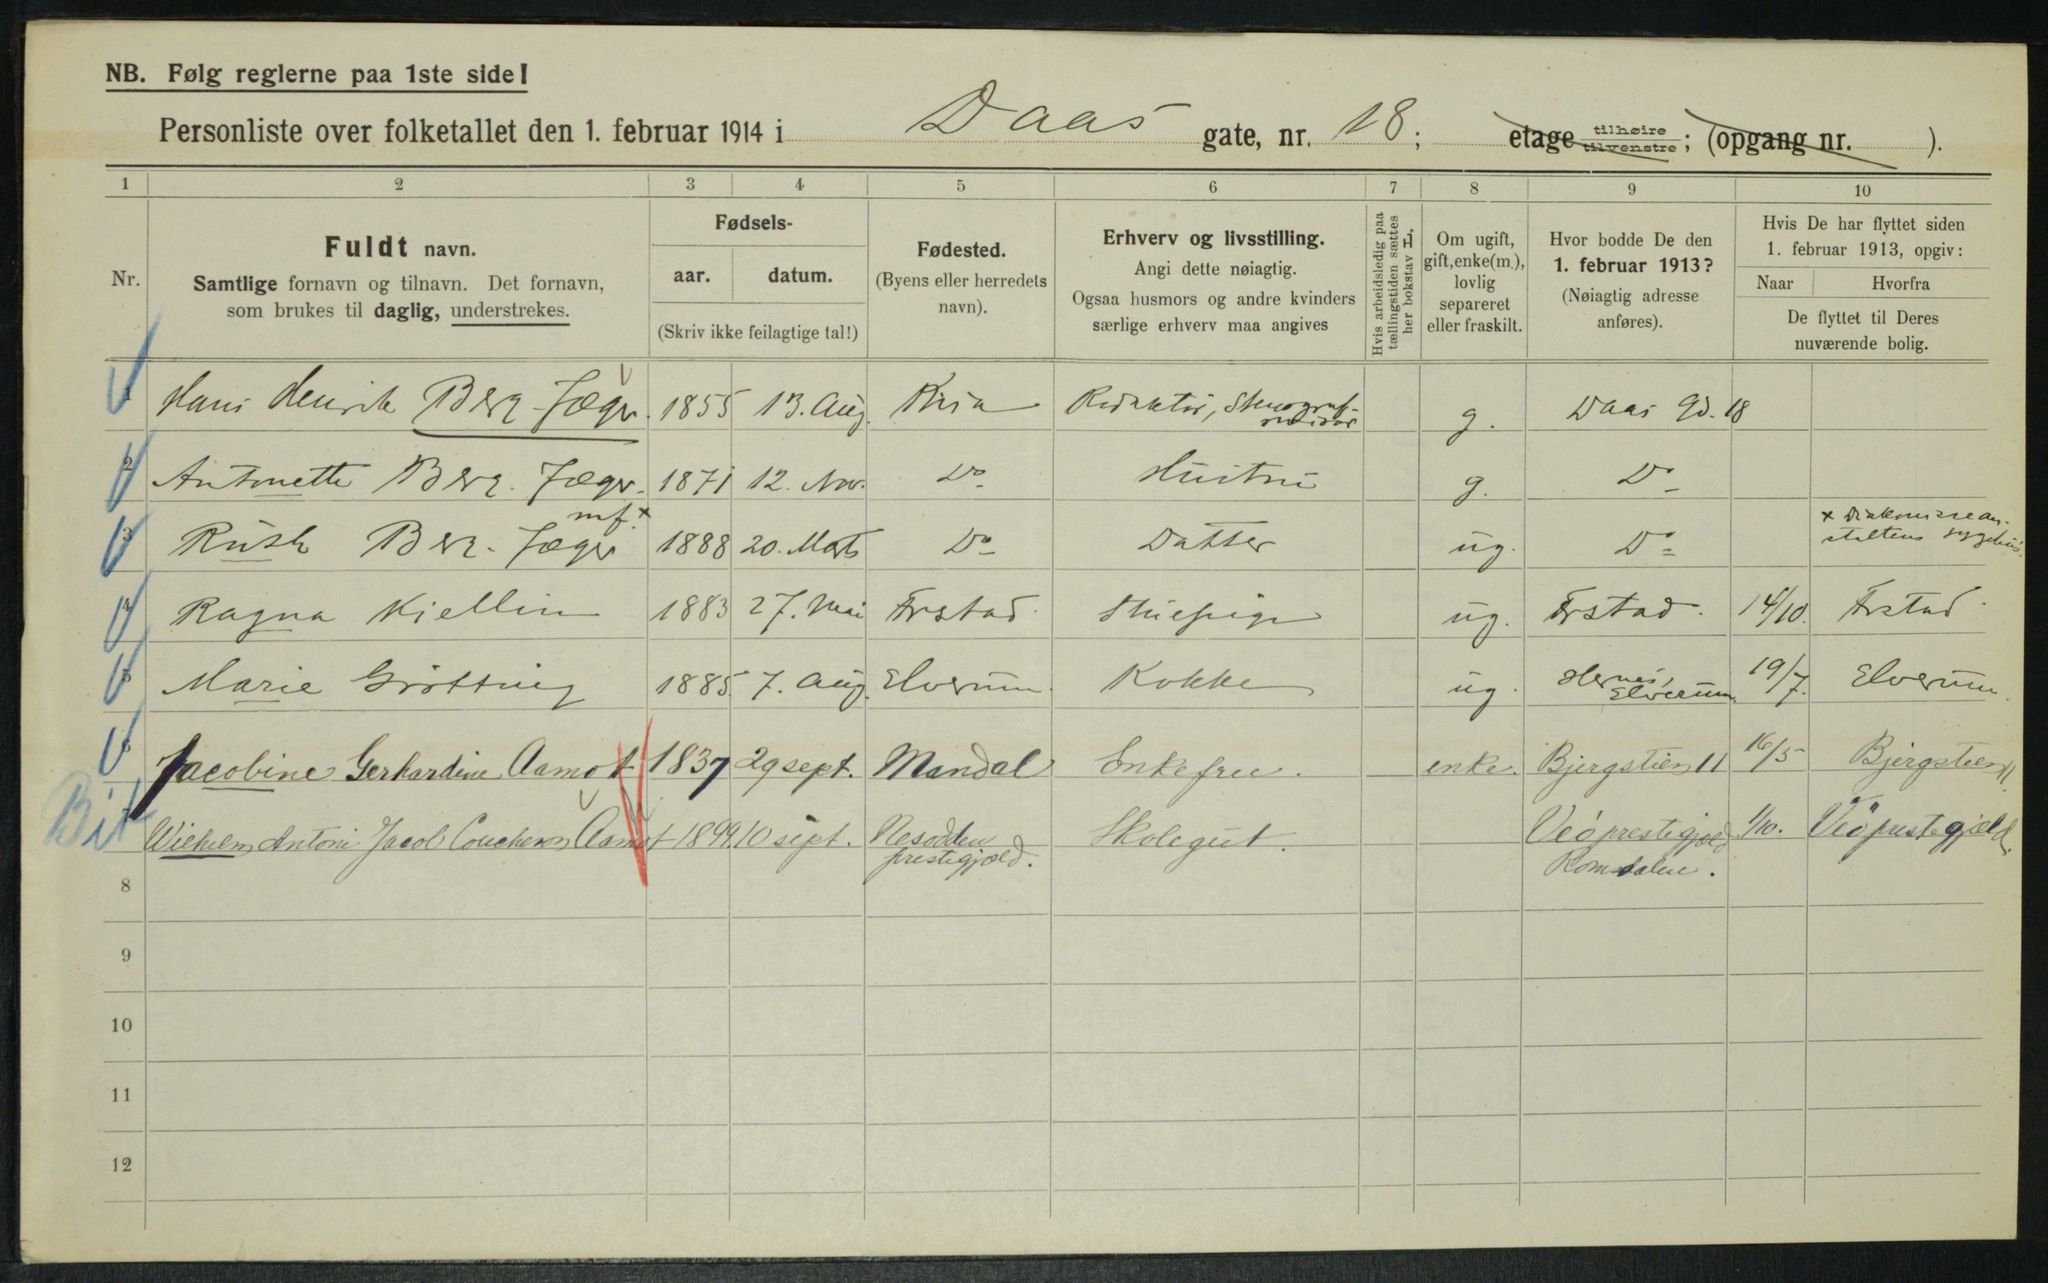 NB. Følg reglerne paa 1ste side!
Personliste over folketallet den 1. februar 1914 i Daas gate, nr. 18; etage tilhøire tilvenstre; (opgang nr. ).
1 2 3 4 5 6 7 8 9 10
Nr.
Fuldt navn.
Samtlige fornavn og tilnavn. Det fornavn,
som brukes til daglig, understrekes.
Fødsels-
aar. datum.
(Skriv ikke feilagtige tal!)
Fødested.
(Byens eller herredets
navn).
Erhverv og livsstilling.
Angi dette nøiagtig.
Ogsaa husmors og andre kvinders
særlige erhverv maa angives
Hvis arbeidsledig paa
tællingstiden sættes
her bokstav L.
Om ugift,
gift, enke(m.),
lovlig
separeret
eller fraskilt.
Hvor bodde De den
1. februar 1913?
(Nøiagtig adresse
anføres).
Hvis De har flyttet siden
1. februar 1913, opgiv:
Naar Hvorfra
De flyttet til Deres
nuværende bolig.
1 Hans Henrik Berg-Jæger. 1855 13. Aug. Kria Redaktør, Stenograf- g. Daas Gd. 18
2 Antonette Berg-Jæger. 1871 12. Nov. Do Hustru g. Do
mf. x
3 Ruth Berg-Jæger 1888 20. Marts Do Datter ug. Do x Diakonissean-
staltens sygehus.
4 Ragna Kjellin 1883 27. Mai Frstad. Stuepige ug. Frstad. 14/10. Frstad
5 Marie Grøtting 1885 7. Aug. Elverum. Kokke ug. Hernes, Elverum. 19/7. Elverum.
6 Jacobine Gerhardine Aamot 1837 29 sept. Mandal Enkefru. enke. Bjergstien 11 16/5 Bjergstien 11.
Bit
7 Wilhelm Antoni Jacob Aamot 1899. 10 sept. Nesodden Skolegut. Veø prestegjæld 1/10. Veø prestegjæld.
prestegjæld. Romsdalen.
8
9
10
11
12